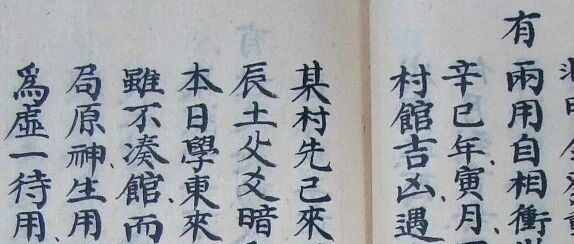 有
兩用自相衝
辛巳年寅月
村館吉凶遇
某村先已來
辰土父爻暗
本日學東來
雖不湊館而
局原神生用
為虛一待用